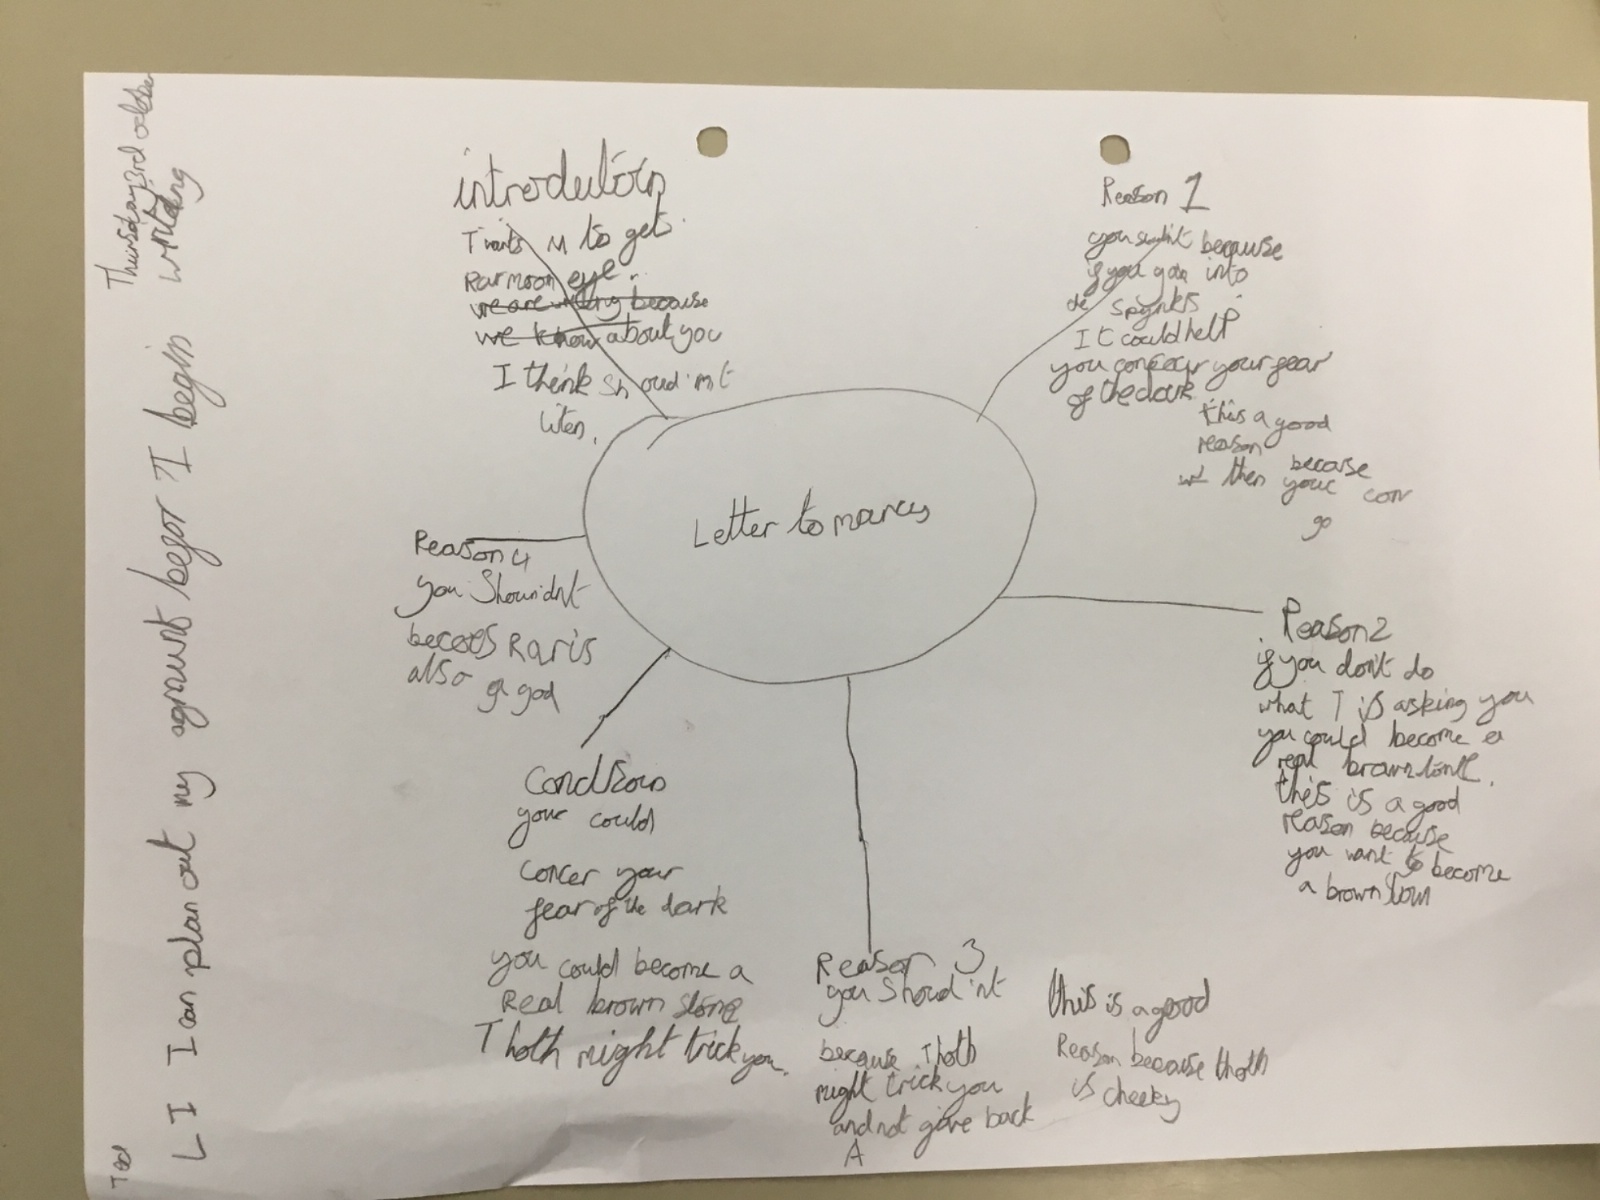 Thursday 3rd october
writing
Ted
LI I can plan out my agraunt begor I begin
Letter to marcus
introdution
T wants M to get
Rar moon eye.
we are writing because
we know about you
I think shoud'nt
liten.
Reason 1
you because
if you go into
spynks
It could help
you your fear
of the dark
this a good
reason
then because
your con
go
Reason 2
if you don't do
what T is asking you
you could become a
real brown
this is a good
reason because
you want to become
a brown
Reason 3
you Shoud'nt
because Thoth
might trick you
and not give back
A
this is a good
Reason because thoth
is cheeky
Condtions
your could
concer your
fear of the dark
you could become a
Real brown stone
Thoth might trick you.
Reason 4
you
Rar is
also a god